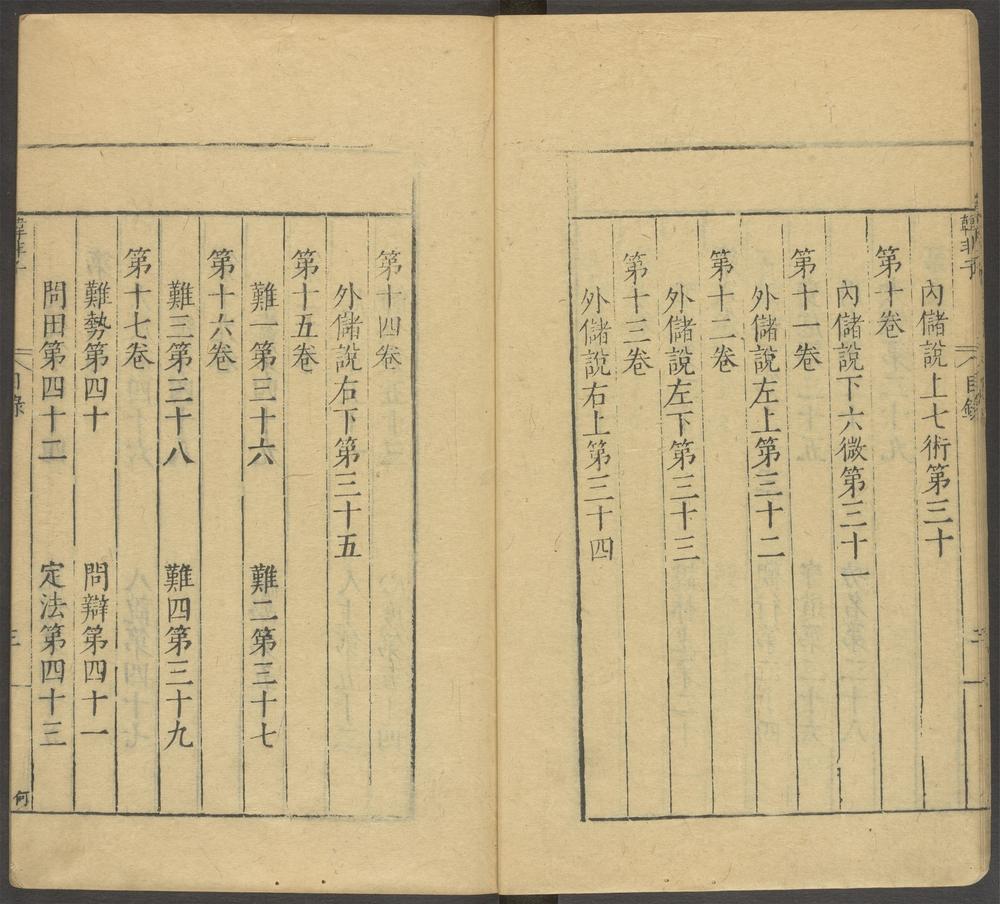 韓非子 目錄 二
內儲說上七術第三十
第十卷
內儲說下六微第三十一
第十一卷
外儲說左上第三十二
第十二卷
外儲說左下第三十三
第十三卷
外儲說右上第三十四
第十四卷
外儲說右下第三十五
第十五卷
難一第三十六 難二第三十七
第十六卷
難三第三十八 難四第三十九
第十七卷
難勢第四十 問辯第四十一
問田第四十二 定法第四十三
韓非子 目錄 三 何